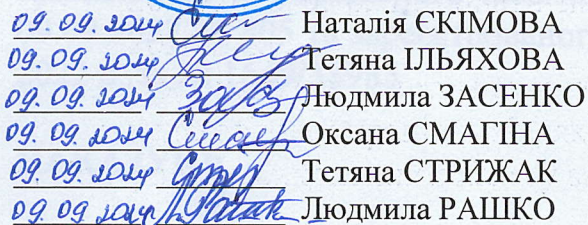 09.09.2024 Наталія ЄКІМОВА
09.09.2024 Тетяна ІЛЬЯХОВА
09.09.2024 Людмила ЗАСЕНКО
09.09.2024 Оксана СМАГІНА
09.09.2024 Тетяна СТРИЖАК
09.09.2024 Людмила РАШКО